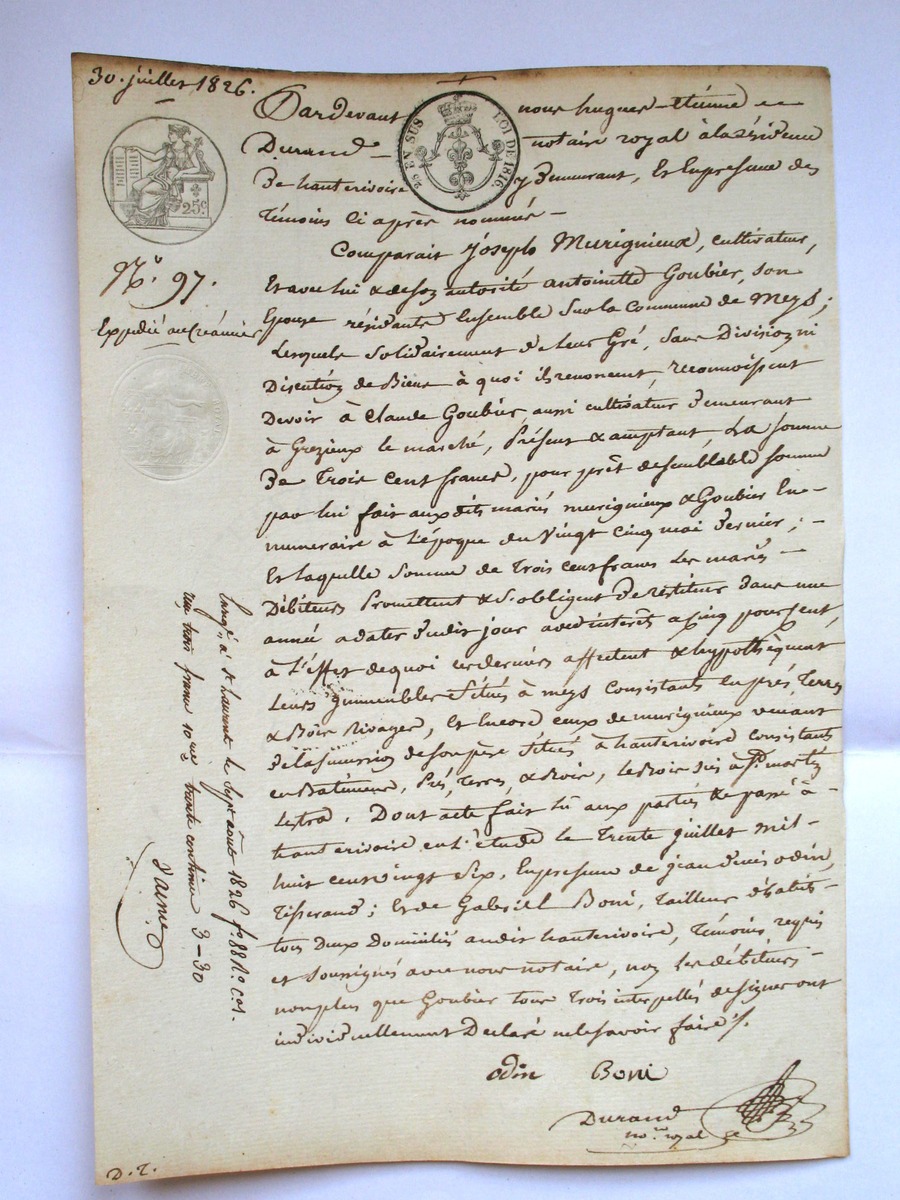 30. juillet 1826.
Pardevant nous hugues-étienne
Durand notaire royal à la résidence
De hauterivoire y Demeurant, Et En presence des
Témoins Ci après nommés
25 EN SUS
LOI DE 1816.
25c.
Comparait Joseph Murigneux, cultivateur,
Et avec lui & de son autorité antoinette Goubier, son
Epouse résidants Ensemble Sur la Commune de Meys;
N.o 97.
Expedié au Créancier
Lesquels solidairement de leur Gré, sans Division ni
Discution de Biens à quoi ils renoncent, reconnoissent
Devoir à Claude Goubier, aussi cultivateur Demeurant
à Grezieux le marché, Présent & acceptant, La somme
De Trois Cent francs, pour prêt de semblable somme
par lui fait aux dits mariés murigneux & Goubier En
numeraire à L'époque du Vingt Cinq mai Dernier;
Et laquelle Somme de Trois Cent francs Les mariés
Débiteurs Promettent & S'obligent De restituer Dans une
année a dater Dudit jour avec intérêts a Cinq pour Cent,
à L'Effet de quoi ces derniers affectent & hypothèquent
Leurs immeubles Situés à meys Consistants En prés, Terres
& Bois Rivages, Et Encore Ceux de murigneux venant
De la succession de son père Situés à hauterivoire Consistants
en Batiments, Prés, Terres, & Bois, le Bois sis à St. martin
Lestra. Dont acte fait lu aux parties & passé à
hauterivoire en L'étude le Trente juillet mil
huit cent vingt Six, En presence de jean Denis odin,
Tisserand; Et de Gabriel Boni, Tailleur d'habits
tous Deux Domiciliés audit hauterivoire, Témoins requis
et soussignés avec nous notaire, non les débiteurs
non plus que Goubier tous Trois interpellés de signer ont
individuellement Déclaré ne le savoir faire ./.
odin Boni
Durand
no.re royal
Enregé à St Laurent le Sept août 1826 fo 88 Ro C.es
reçu trois francs 10me trente centimes 3-30
D. T.